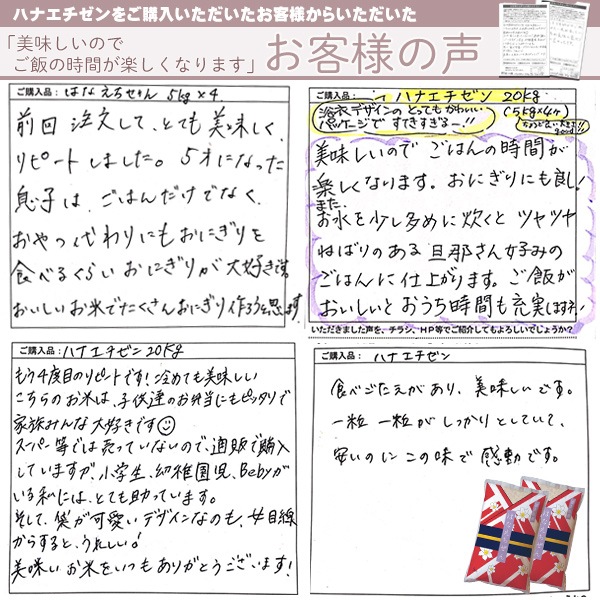 ハナエチゼンをご購入いただいたお客様からいただいた
「美味しいので
ご飯の時間が楽しくなります」
お客様の声
ご購入品： はなえちぜん 5kg×4
前回 注文して、とても美味しく
リピートしました。5才になった
息子は、ごはんだけでなく、
おやつ代わりにもおにぎりを
食べるくらい おにぎりが大好きで
おいしいお米でたくさんおにぎり作ろうと思います
ご購入品： ハナエチゼン 20kg
浴衣デザインの とってもかわいい (5kg×4ヶ)
パッケージで すてきすぎるー!!
美味しいので ごはんの時間が
楽しくなります。おにぎりにも良し!
また、
お水を少し多めに炊くと ツヤツヤ
ねばりのある 旦那さん好みの
ごはんに仕上がります。ご飯が
おいしいと おうち時間も充実しますネ!
いただきました声を、チラシ、HP等でご紹介してもよろしいでしょうか?
ご購入品： ハナエチゼン 20kg
もう4度目のリピートです!冷めても美味しい
こちらのお米は、子供達のお弁当にもピッタリで
家族みんな大好きです
スーパー等では売っていないので、通販で購入
していますが、小学生、幼稚園児、Bebyが
いる私には、とても助っています。
そして、袋が可愛いデザインなのも、女目線
からすると、うれしい!
美味いお米をいつもありがとうございます!
ご購入品： ハナエチゼン
食べごたえがあり、美味しいです。
一粒 一粒が しっかりとしていて、
安いのに この味で 感動です。